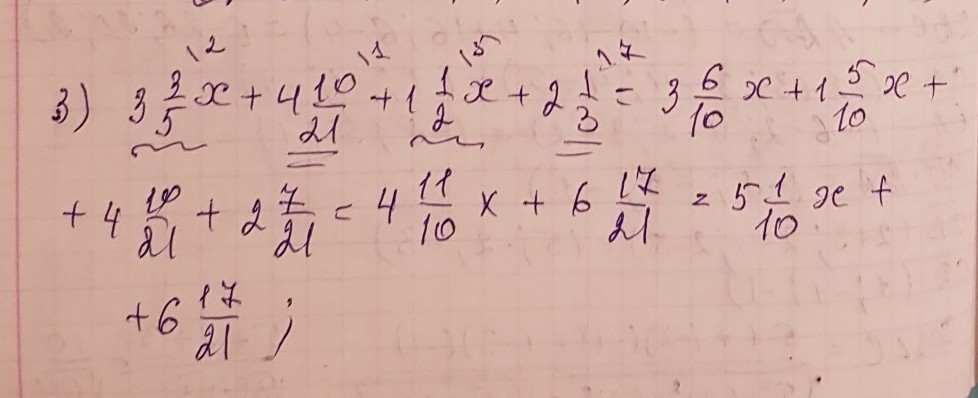 3) 3 3/5 \2 x + 4 10/21 \1 + 1 1/2 \5 x + 2 1/3 \7 = 3 6/10 x + 1 5/10 x +
+ 4 10/21 + 2 7/21 = 4 11/10 x + 6 17/21 = 5 1/10 x +
+ 6 17/21 ;